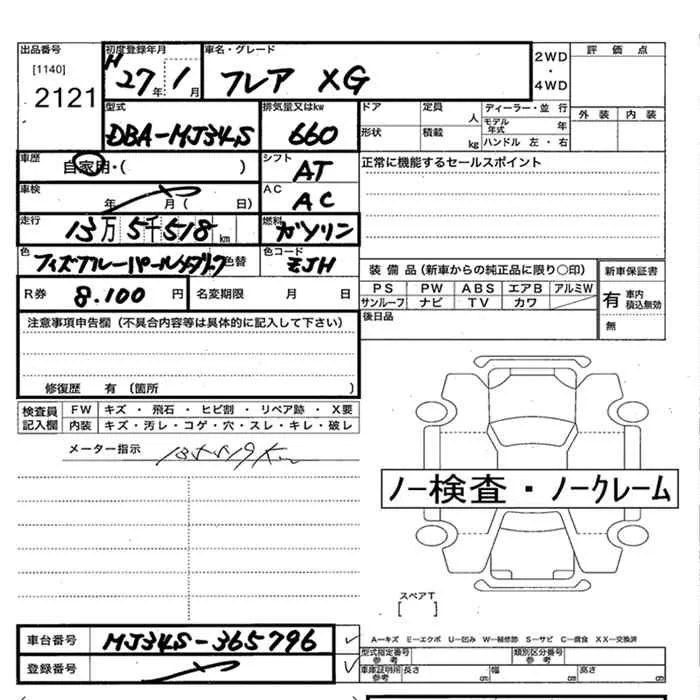 出品番号 初度登録年月 車名・グレード 2WD・4WD 評価点
[1140] H27年1月 フレア XG
2121
型式 排気量又はkw ドア 定員 人 ディーラー・並行 外装 内装
DBA-MJ34S 660 形状 積載 kg モデル年式 年
ハンドル 左・右
車歴 自家用・( ) シフト AT 正常に機能するセールスポイント
車検 年 月( 日) AC AC
走行 13万5千518km 燃料 ガソリン
色 色替 色コード ZJH
R券 8.100円 名変期限 月 日
装備品(新車からの純正品に限り〇印) 新車保証書
PS PW ABS エアB アルミW 有 車内積込無効
サンルーフ ナビ TV カワ 無
後日品
注意事項申告欄(不具合内容等は具体的に記入して下さい)
修復歴 有 (箇所 )
検査員記入欄 FW キズ・飛石・ヒビ割・リペア跡・X要
内装 キズ・汚レ・コゲ・穴・スレ・キレ・破レ
メーター指示
ノー検査・ノークレーム
スペアT
[ ]
車台番号 MJ34S-365796
登録番号
A-キズ E-エクボ U-凹み W-補修跡 S-サビ C-腐食 XX-交換済
型式指定番号 参考 類別区分番号 参考
車庫証明所 参考 長さ cm 幅 cm 高さ cm